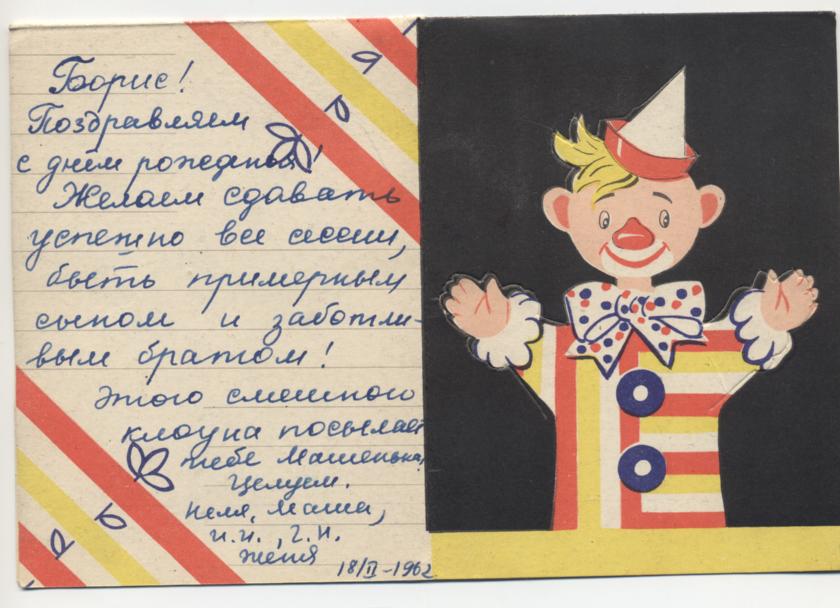 Борис!
Поздравляем
с днём рожденья!
Желаем сдавать
успешно все сессии,
быть примерным
сыном и заботли-
вым братом!
Этого смешного
клоуна посылает
тебе Машенька.
Целуем.
Неля, Маша,
И.И., Г.И.
Женя
18/II-1962